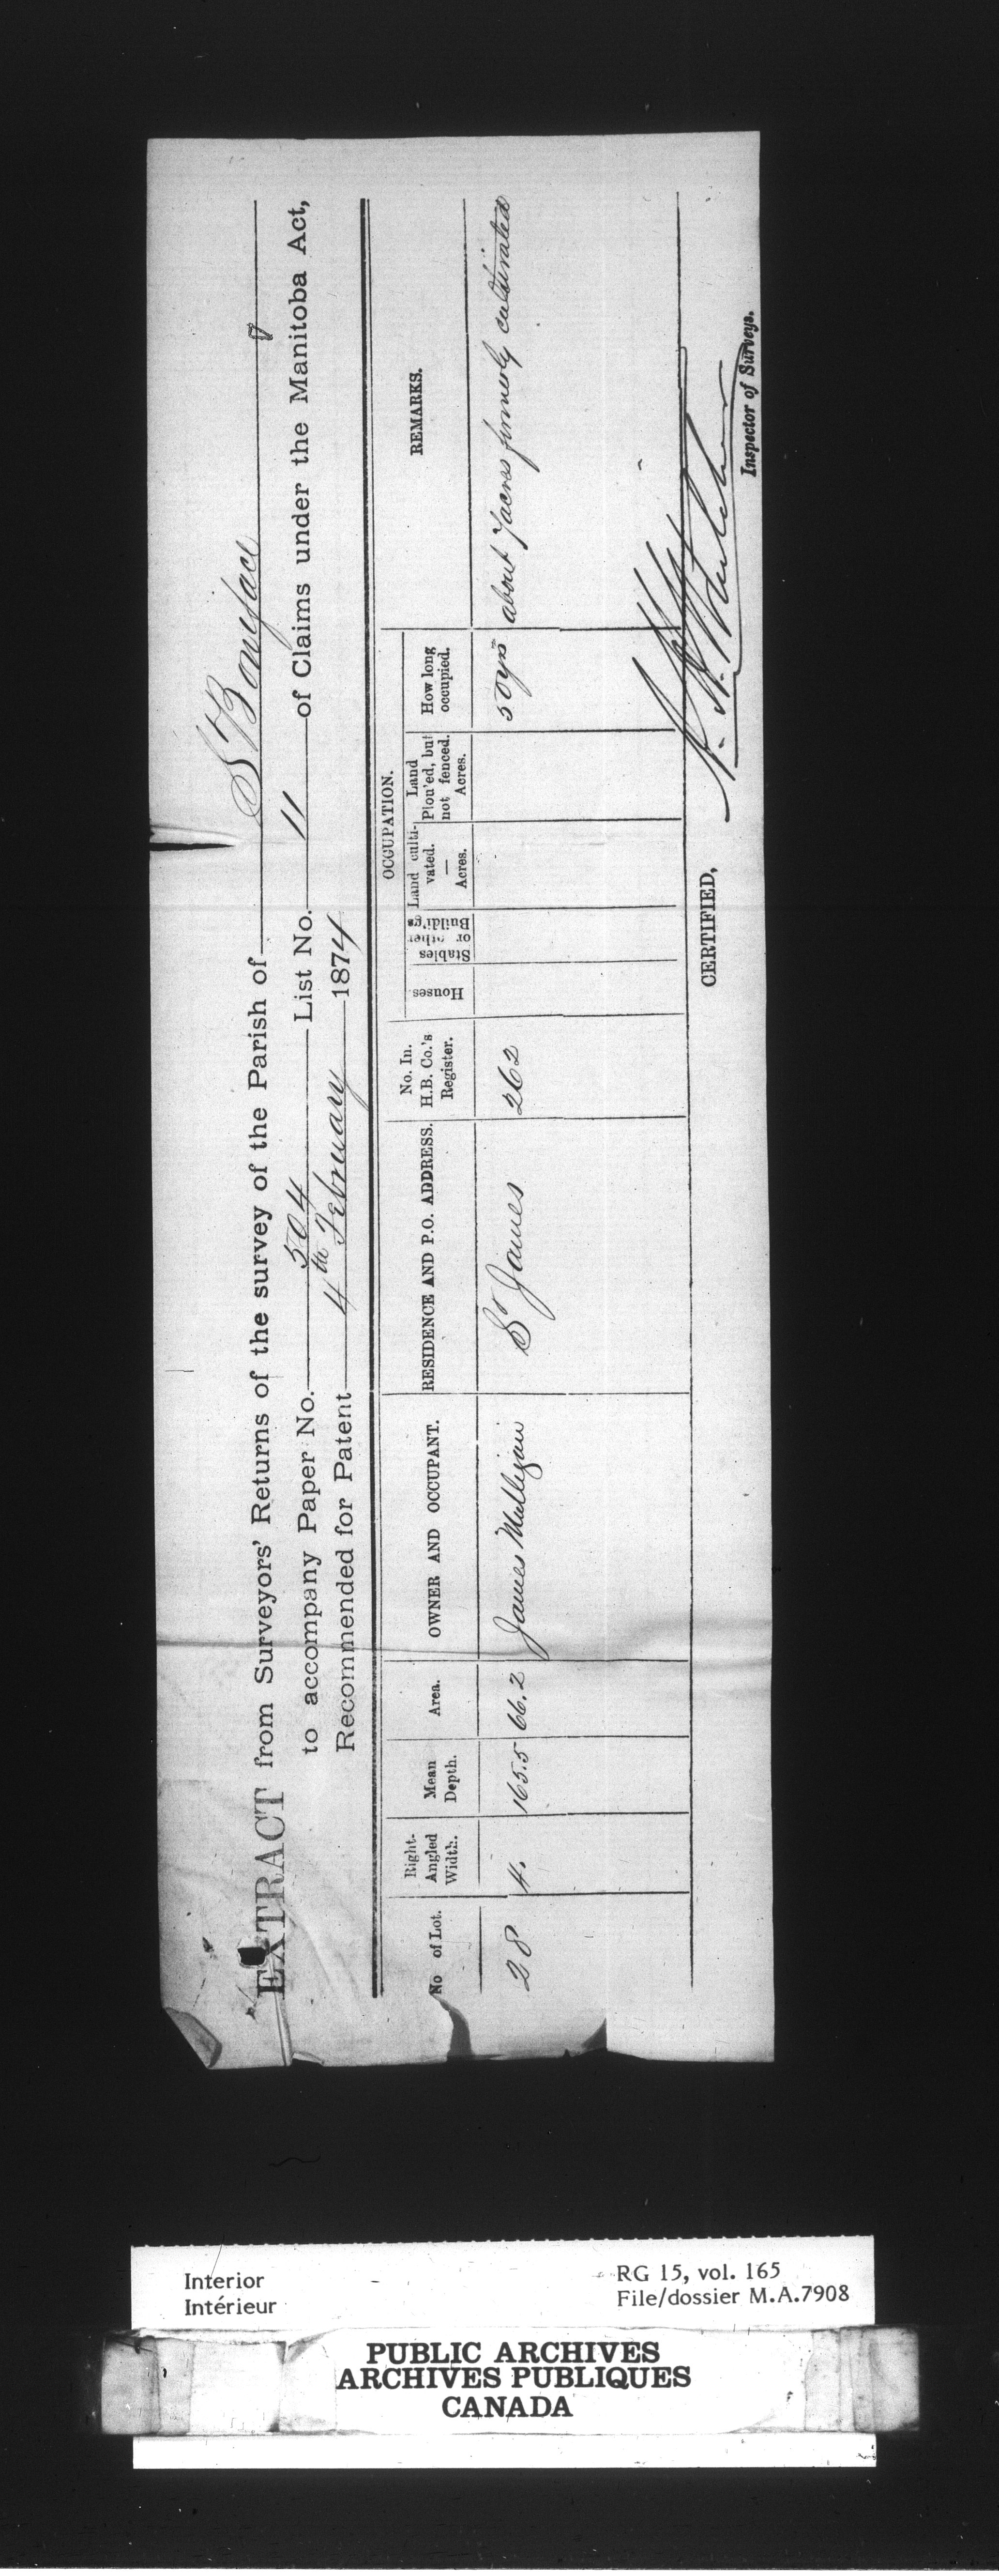 EXTRACT from Surveyors' Returns of the survey of the Parish of St Boniface
to accompany Paper No. 504 List No. 11 of Claims under the Manitoba Act,
Recommended for Patent 4th February 1874
OCCUPATION.
No of Lot. Right-Angled Width. Mean Depth. Area. OWNER AND OCCUPANT. RESIDENCE AND P.O. ADDRESS. No. In. H.B. Co.'s Register. Houses. Stables or other Buildings Land cultivated. — Acres. Land Plou'ed, but not fenced. Acres. How long occupied. REMARKS.
28 4. 165.5 66.2 James Mulligan St James 262 50 yrs about 7 acres formerly cultivated
CERTIFIED,
Inspector of Surveys.
Interior
Intérieur
RG 15, vol. 165
File/dossier M.A.7908
PUBLIC ARCHIVES
ARCHIVES PUBLIQUES
CANADA